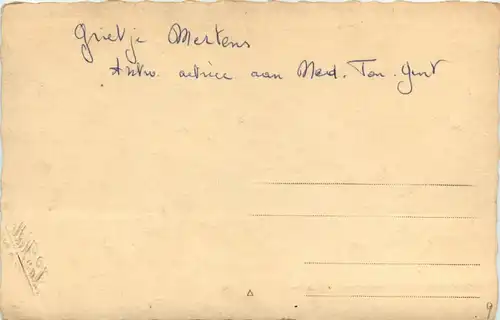 Grietje Mertens
Antw. actrice aan Ned. Ton. Gent
9